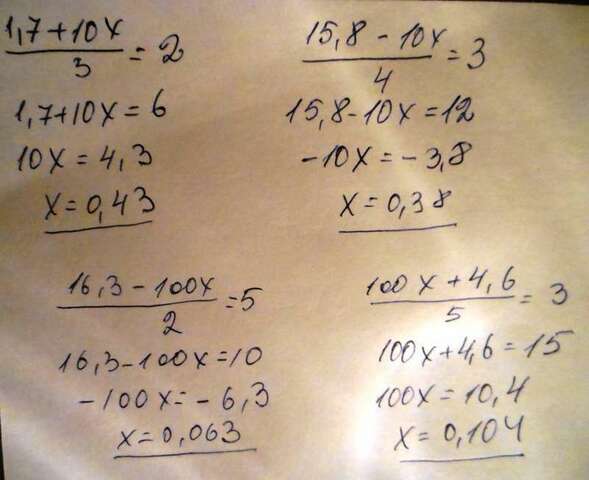 (1,7+10x)/3 = 2
1,7+10x = 6
10x = 4,3
x = 0,43
(15,8 - 10x)/4 = 3
15,8-10x = 12
-10x = -3,8
x = 0,38
(16,3 - 100x)/2 = 5
16,3-100x = 10
-100x = -6,3
x = 0,063
(100x + 4,6)/5 = 3
100x+4,6 = 15
100x = 10,4
x = 0,104